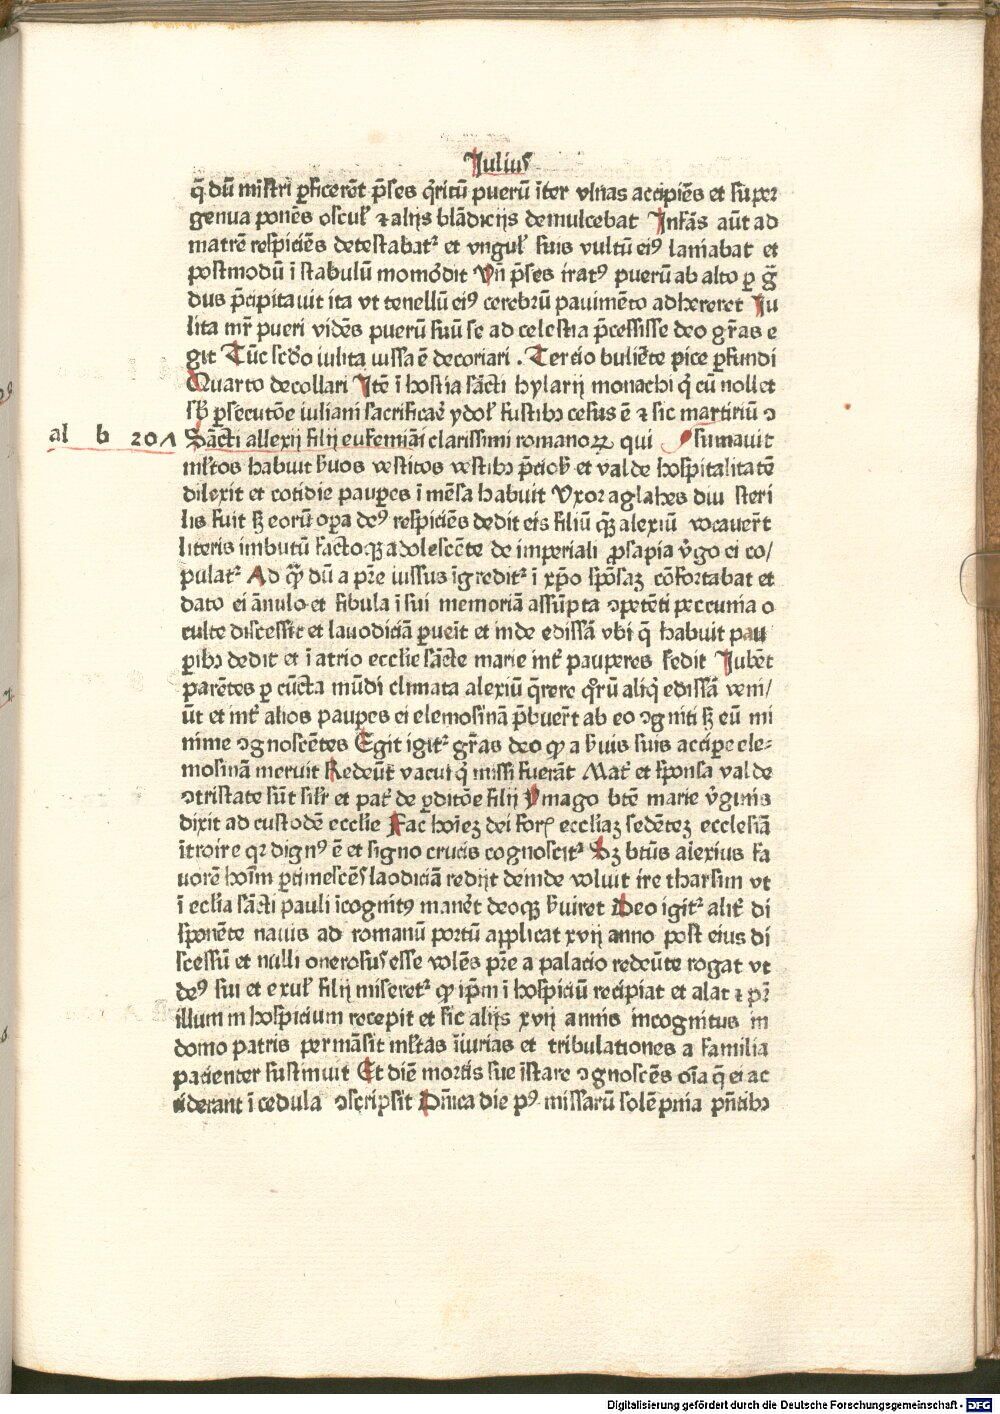 Julius
q̄ dū mīstri ꝑficerēt p̄ses q̄ritū puerū īter vlnas accipiēs et suꝑ
genua ponēs oscul' ⁊ alijs blādicijs demulcebat Infās aūt ad
matrē respiciēs detestabat᷑ et vngul' suis vultū eiꝰ laniabat et
postmodū ī stabulū momordit Vn̄ p̄ses iratꝰ puerū ab alto ꝑ g̃
dus p̄cipitauit ita vt tenellū eiꝰ cerebrū pauimēto adhereret Ju
lita mr̄ pueri vidēs puerū suū se ad celestia p̄cessisse deo gr̄as e
git Tūc sc̄do iulita iussa ē decoriari . Tercio buliēte pice ꝑfundi
Quarto decollari Itē ī hostia sācti hylarij monachi q̇ cū nollet
sb̄ ꝑsecutōe iuliani sacrificaē ydol' fustibꝫ cesus ē ⁊ sic martiriū ↄ
al b 201 Sācti allexij filij eufemiāi clarissimi romanoꝝ qui ↄsumauit
ml'tos habuit ẜuos vestitos vestibꝫ p̄ciosꝭ et valde hospitalitatē
dilexit et cotidie pauꝑes ī mēsa habuit Vxor aglahes diu steri
lis fuit sꝫ eorū oꝑa deꝰ respiciēs dedit eis filiū qꝫ alexiū vocauer̄t
literis imbutū factoqꝫ adolescēte de imperiali ꝓsapia v̄go ei co/
pulat᷑ Ad q̄ dū a pr̄e iussus īgredit᷑ ī xp̄o spōsaꝫ cōfortabat et
dato ei ānulo et fibula ī sui memoriā assūpta ↄpetēti peccunia o
culte discessit et lauodiciā ꝑueīt et inde edissā vbi q̄ habuit pau
ꝑibꝫ dedit et ī atrio ecclie sācte marie int̄ pauperes sedit Jubēt
parētes ꝑ cūcta mūdi climata alexiū q̄rere q̊rū aliq̇ edissā veni/
ūt et int̄ alios pauꝑes ei elemosinā p̄buer̄t ab eo ↄgniti sꝫ eū mi
nime ↄgnoscētes Egit igit᷑ gr̄as deo ꝙ a ẜuis suis acciꝑe ele=
mosinā meruit Redeūt vacui q̇ missi fuerāt Mat̄ et sponsa valde
ↄtristate sūt silr̄ et pat̄ de ꝑditōe filij Ymago btē marie v̄ginis
dixit ad custodē ecclie Fac hoīeꝫ dei foꝝ eccliaꝫ sedēteꝫ ecclesiā
ītroire qꝛ dignꝰ ē et signo crucis cognoscit᷑ Sꝫ btūs alexius fa
uorē hoīm ꝑtimescēs laodiciā redijt deinde voluit ire tharsim vt
ī eclia sācti pauli īcognitꝰ manēt deoqꝫ ẜuiret Deo igit᷑ alit̄ di
sponēte nauis ad romanū portū applicat xvij anno post eius di
scessū et nulli onerosus esse volēs pr̄e a palacio redeūte rogat vt
deꝰ sui et exul' filij miseret᷑ ꝙ ip̄m ī hospiciū recipiat et alat ⁊ pr̄
illum in hospicium recepit et sic alijs xvij annis incognitus in
domo patris permāsit ml'tas īiurias et tribulationes a familia
pacienter sustinuit Et diē mortis sue īstare ↄgnoscēs oīa q̄ ei ac
ciderant ī cedula ↄscripsit Dn̄ica die pꝰ missarū solēpnia pn̄tibꝫ